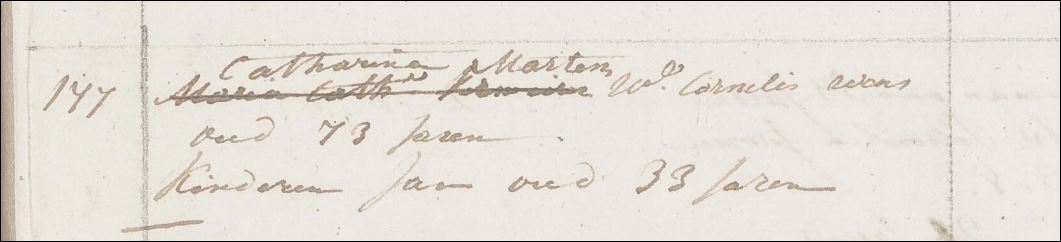 Catharina Martens
147 Maria Cath. Wed. Cornelis
oud 73 Jaren
Kinderen Jan oud 33 Jaren